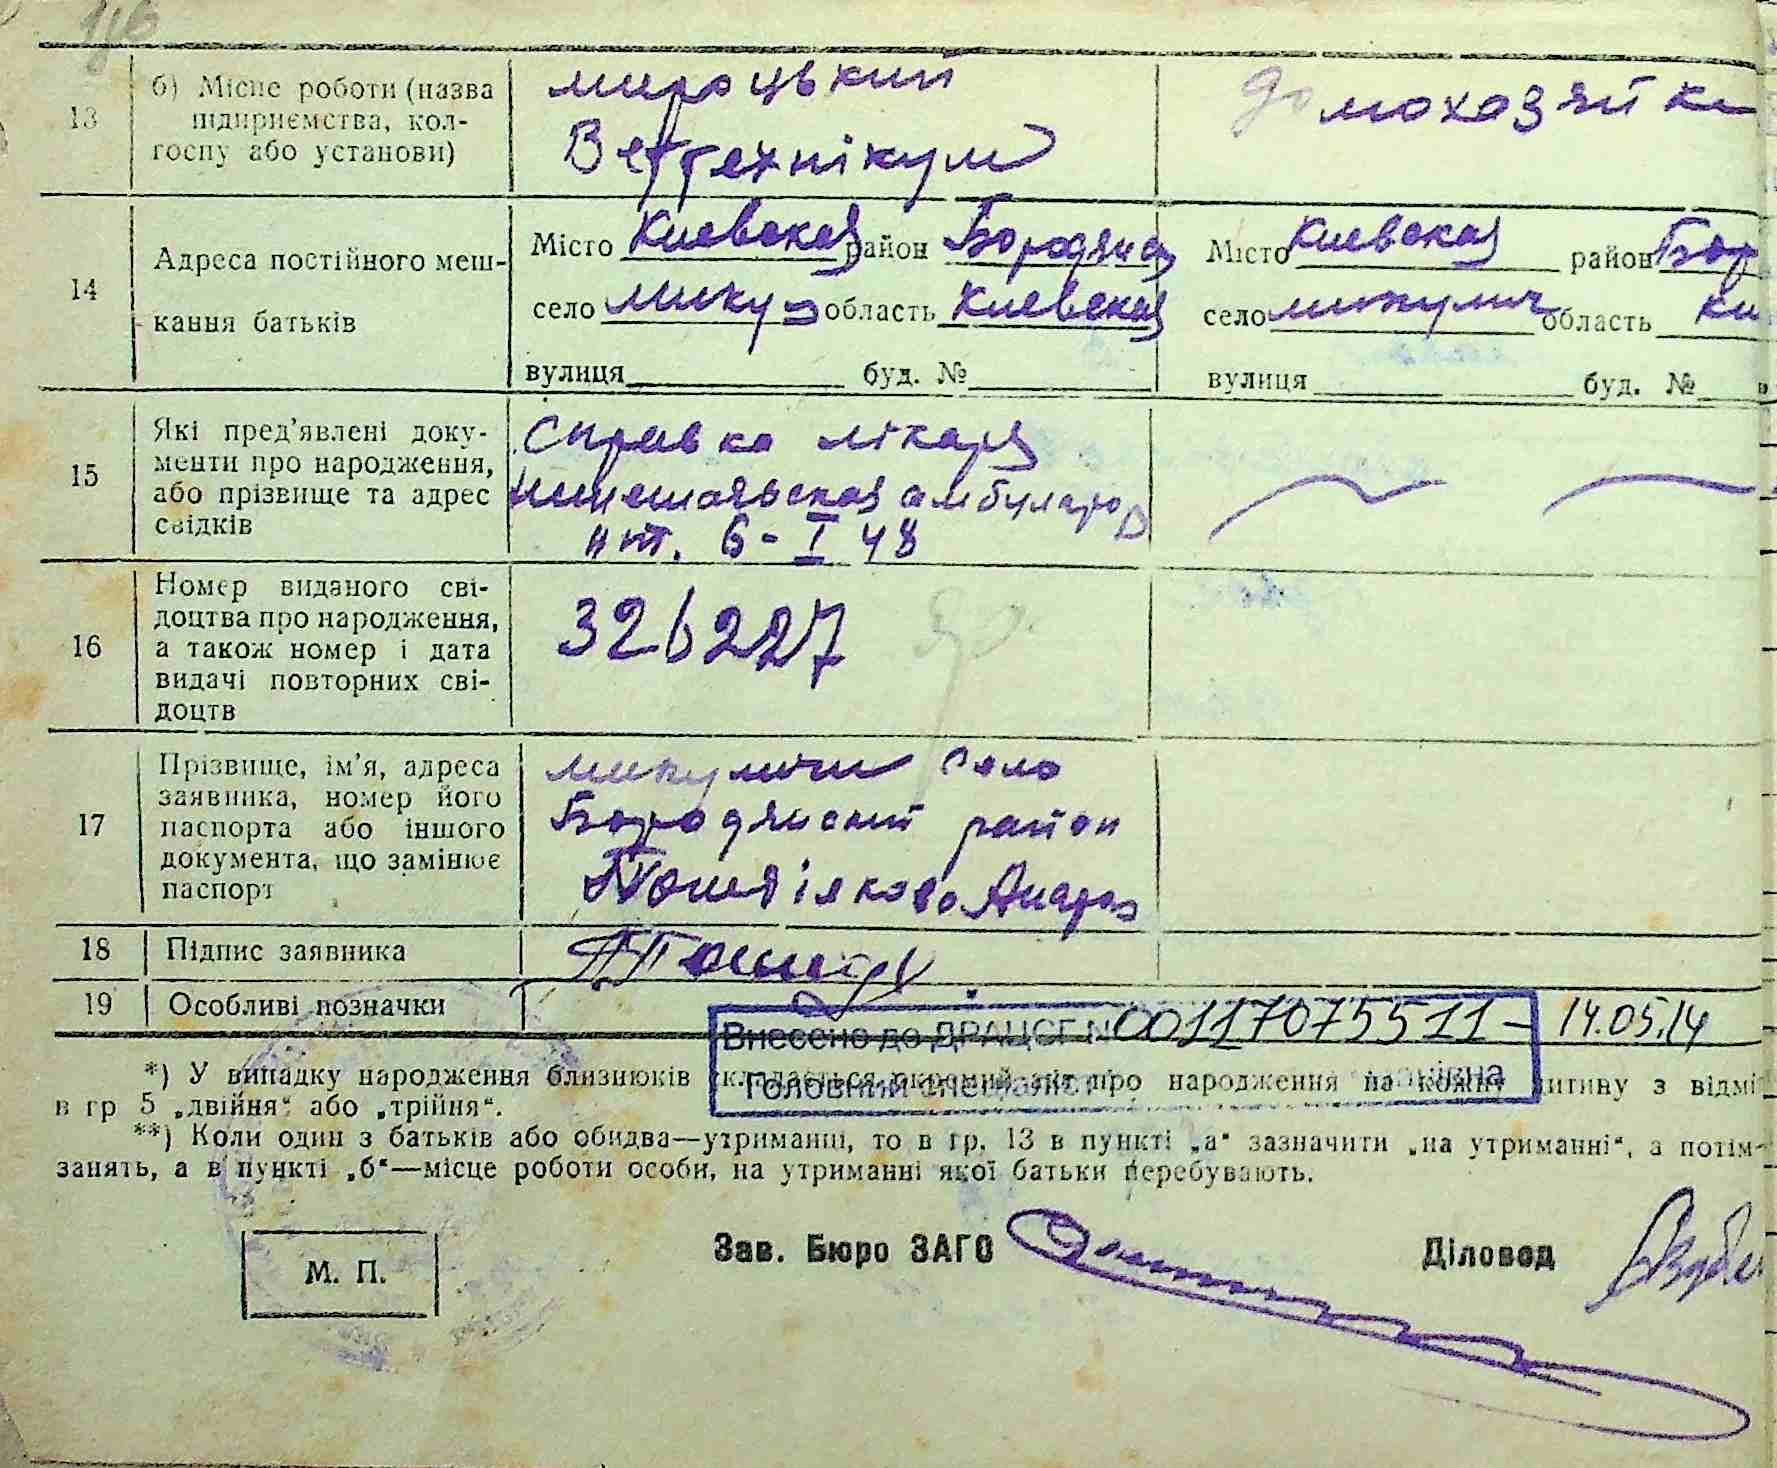 13
б) Місце роботи (назва
підприємства, кол-
госпу або установи)
мироцький
Веттехнікум
домохозяйка
14
Адреса постійного меш-
кання батьків
Місто Киевская район Бородянс
село Мику область Киевская
вулиця буд. №
Місто Киевская район Бор
село микулич область Ки
вулиця буд. №
15
Які пред’явлені доку-
менти про народження,
або прізвище та адрес
свідків
Справка лікаря
6-I 48
16
Номер виданого сві-
доцтва про народження,
а також номер і дата
видачі повторних сві-
доцтв
326227
17
Прізвище, ім’я, адреса
заявника, номер його
паспорта або іншого
документа, що замінює
паспорт
микуличи село
Бородянский район
18
Підпис заявника
19
Особливі позначки
Внесено до ДРАЦСГ № 00117075511 – 14.05.14
Головний спеціаліст
*) У випадку народження близнюків складається окремий акт про народження на кожну дитину з відмі
в гр 5 „двійня“ або „трійня“.
**) Коли один з батьків або обидва—утриманці, то в гр. 13 в пункті „а“ зазначити „на утриманні“, а потім
занять, а в пункті „б“—місце роботи особи, на утриманні якої батьки перебувають.
М. П.
Зав. Бюро ЗАГС
Діловод